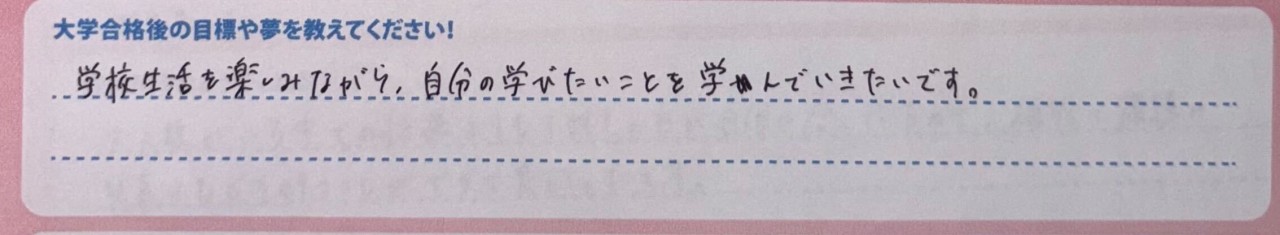 大学合格後の目標や夢を教えてください!
学校生活を楽しみながら、自分の学びたいことを学んでいきたいです。